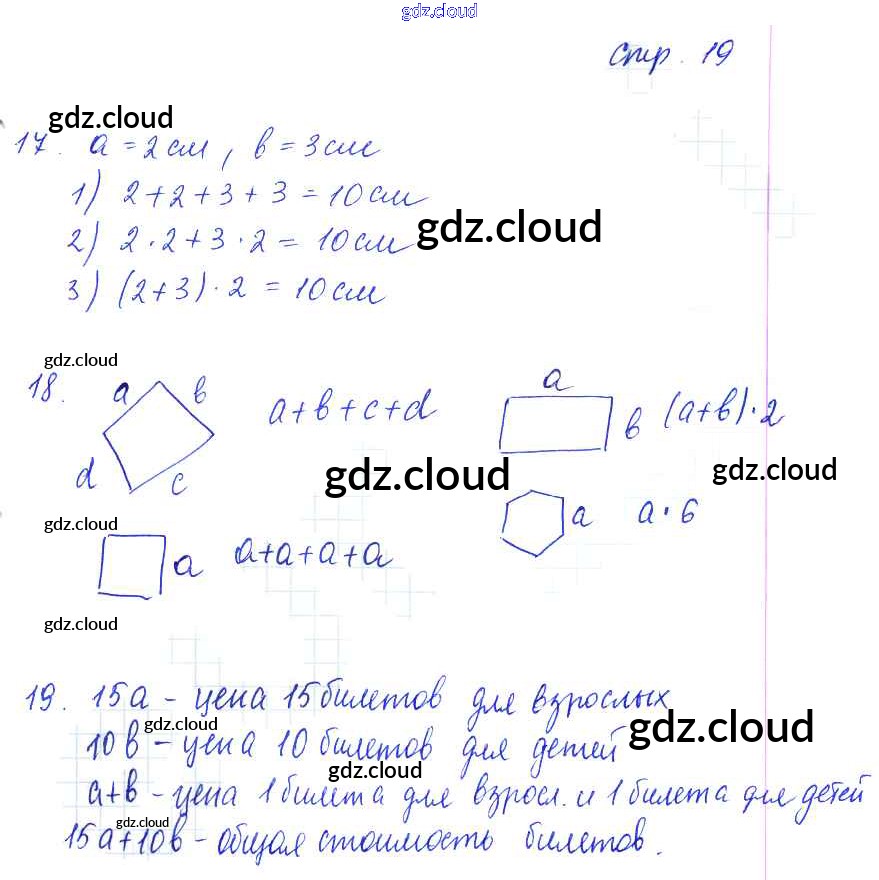 gdz.cloud
стр. 19
gdz.cloud
17. a = 2 см, в = 3 см
1) 2 + 2 + 3 + 3 = 10 см
gdz.cloud
2) 2 · 2 + 3 · 2 = 10 см
3) (2 + 3) · 2 = 10 см
gdz.cloud
18. a в a + в + c + d a в (a + в) · 2
d c gdz.cloud gdz.cloud
gdz.cloud
a a + a + a + a a a · 6
gdz.cloud
19. 15a - цена 15 билетов для взрослых
gdz.cloud gdz.cloud
10в - цена 10 билетов для детей
gdz.cloud
a + в - цена 1 билета для взросл. и 1 билета для детей
gdz.cloud
15a + 10в - общая стоимость билетов.